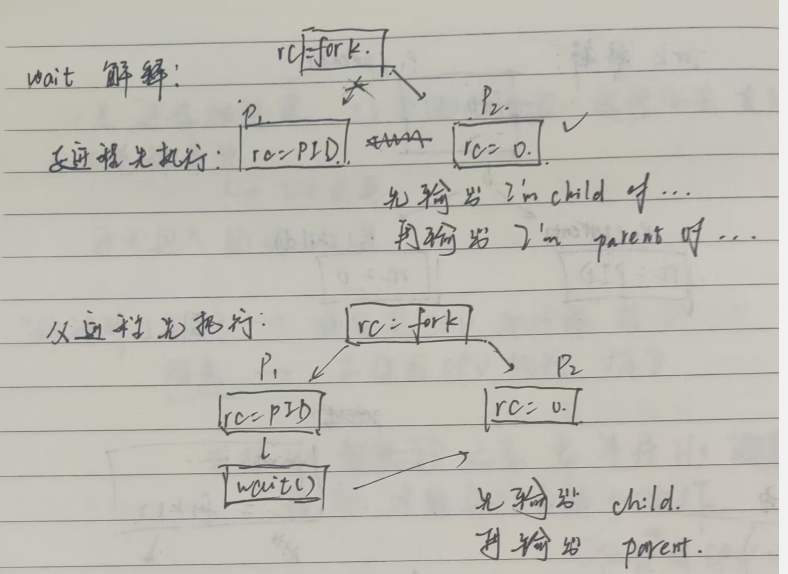 rc=fork.
wait 解释:
P₁ P₂.
进程先执行: rc=PID rc=0.
先输出 I'm child of ...
再输出 I'm parent of ...
父进程先执行: rc=fork
P₁ P₂
rc=PID rc=0.
wait()
先输出 child.
再输出 parent.